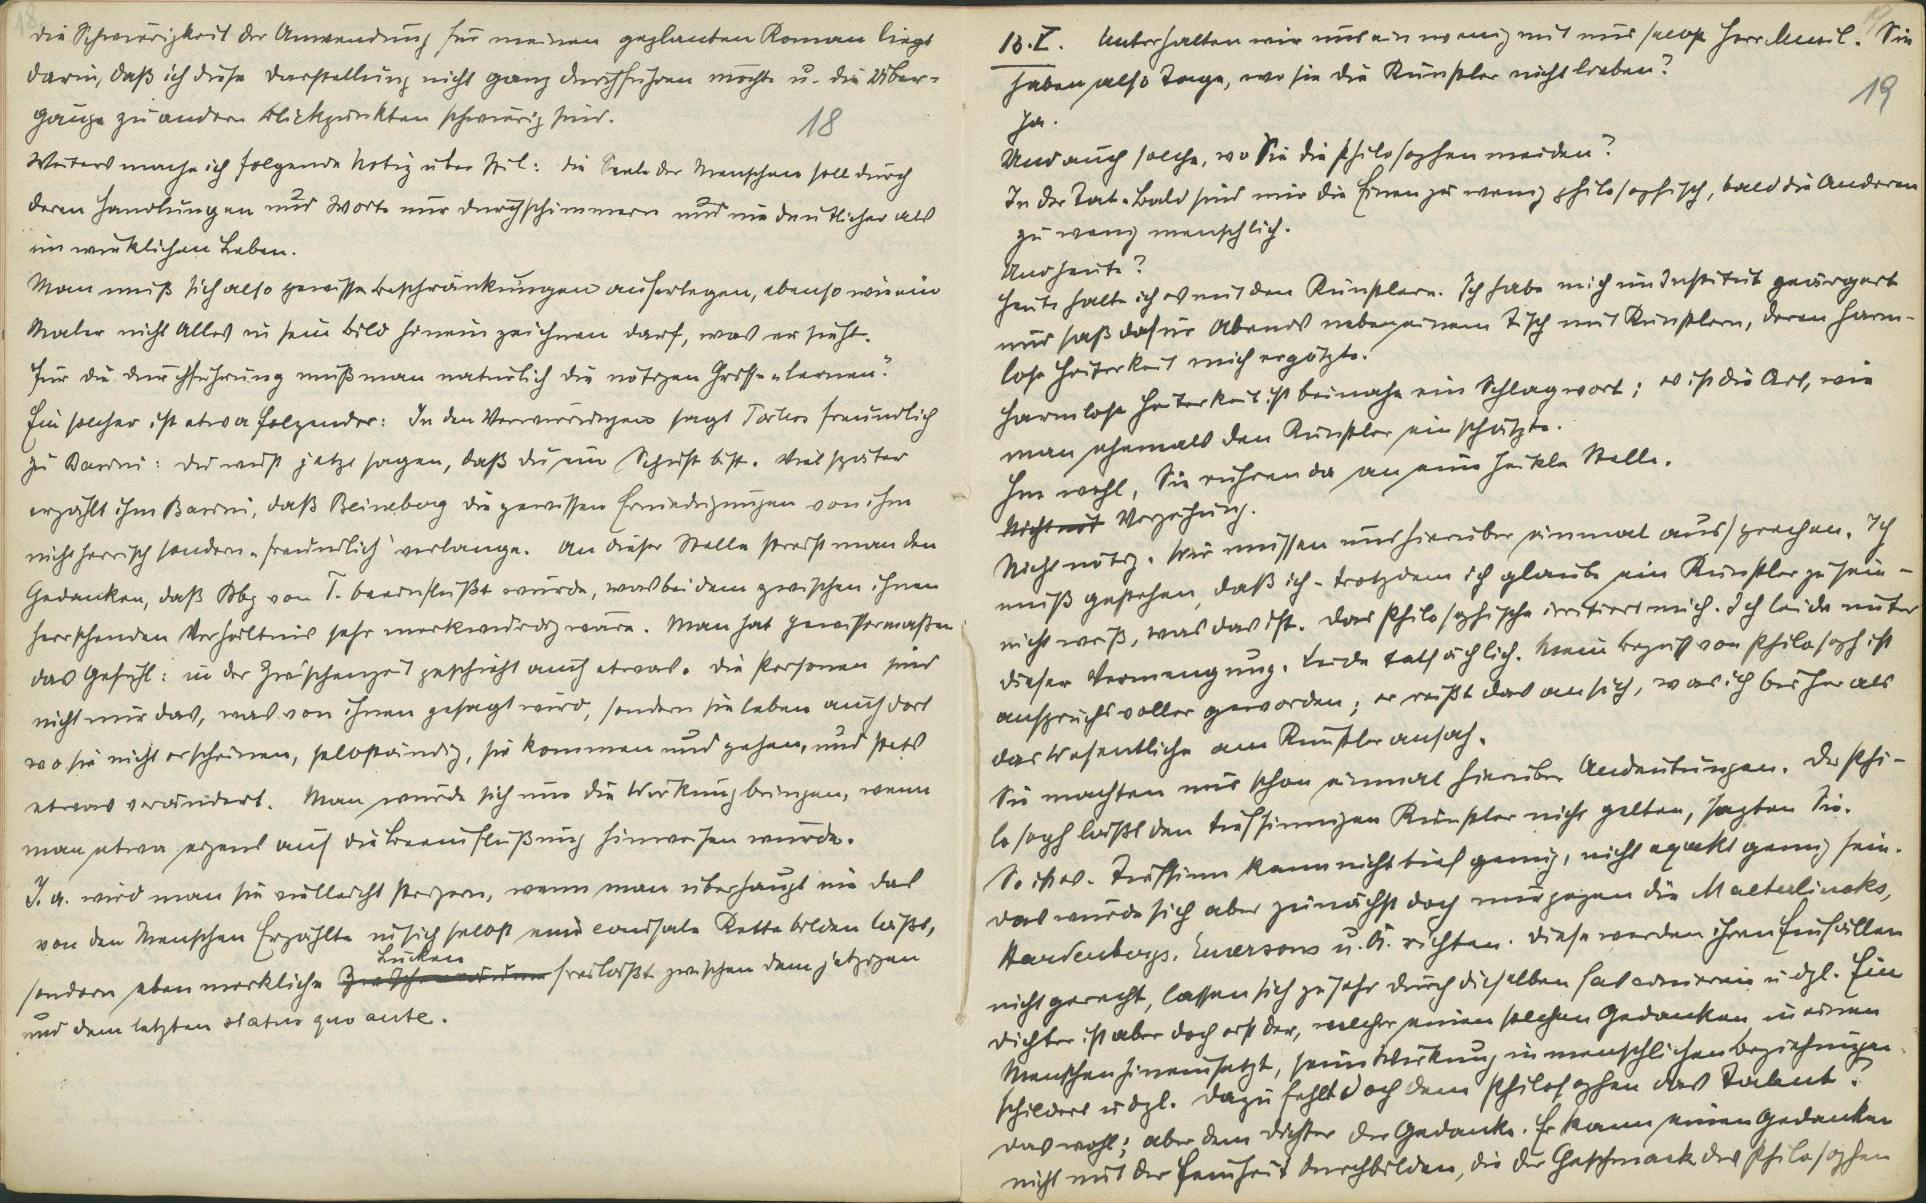 18
die Schwierigkeit der Anwendung für meinen geplanten Roman liegt
darin, daß ich diese Darstellung nicht ganz durchführen möchte u. die Über-
gänge zu andern Blickpunkten schwierig sind.
18
Weiters mache ich folgende Notiz über Stil: die Seele der Menschen soll durch
deren Handlungen und Worte nur durchschimmern und nie deutlicher als
im wirklichen Leben.
Man muß sich also gewisse Beschränkungen auferlegen, ebenso wie ein
Maler nicht Alles in sein Bild hineinzeichnen darf, was er sieht.
Für die Durchführung muß man natürlich die nötigen Griffe „lernen".
Ein solcher ist etwa folgender: In den Verwirrungen sagt Törless freundlich
zu Basini: du mußt jetzt sagen, daß du ein Schuft bist. Viel später
erzählt ihm Basini, daß Beineberg die gewissen Erniedrigungen von ihm
nicht herrisch sondern „freundlich" verlange. An dieser Stelle streift man den
Gedanken, daß Bbg von T. beeinflußt wurde, was bei dem zwischen ihnen
herrschenden Verhältnis sehr merkwürdig wäre. Man hat gewissermaßen
das Gefühl: in der Zwischenzeit geschieht auch etwas. Die Personen sind
nicht nur das, was von ihnen gesagt wird, sondern sie leben auch dort
wo sie nicht erscheinen, selbständig, sie kommen und gehen, und stets
etwas verändert. Man würde sich um die Wirkung bringen, wenn
man etwa eigens auf die Beeinflußung hinweisen würde.
I. a. wird man sie vielleicht steigern, wenn man überhaupt nie das
von den Menschen Erzählte in sich selbst eine causale Kette bilden läßt,
Lücken
sondern eben merkliche Zwischenräume freiläßt zwischen dem jetzigen
und dem letzten status quo ante.
19
13.V. Unterhalten wir uns ein wenig mit uns selbst Herr Musil. Sie
haben also Tage, wo sie die Künstler nicht lieben?
Ja.
Und auch solche, wo Sie die Philosophen meiden?
In der Tat. Bald sind mir die Einen zu wenig philosophisch, bald die Anderen
zu wenig menschlich.
Und heute?
Heute halte ich es mit den Künstlern. Ich habe mich im Institut geärgert
und saß dafür Abends neben einem Tisch mit Künstlern, deren harm-
lose Heiterkeit mich ergötzte.
Harmlose Heiterkeit ist beinahe ein Schlagwort; es ist die Art, wie
man ehemals den Künstler einschätzte.
Hm wohl, Sie rühren da an eine heikle Stelle.
Nicht nöt Verzeihung.
Nicht nötig. Wir müssen uns hierüber einmal aussprechen. Ich
muß gestehen, daß ich - trotzdem ich glaube ein Künstler zu sein -
nicht weiß, was das ist. Das Philosophische irritiert mich. Ich leide unter
dieser Vermengung. Leide tatsächlich. Mein Begriff von Philosoph ist
anspruchsvoller geworden; er reißt das an sich, was ich bisher als
das Wesentliche am Künstler ansah.
Sie machten mir schon einmal hierüber Andeutungen. Der Phi-
losoph läßt den tiefsinnigen Künstler nicht gelten, sagten Sie.
So ist es. Tiefsinn kann nicht tief genug, nicht exakt genug sein.
Das würde sich aber zunächst doch nur gegen die Maeterlincks,
Hardenbergs, Emersons u. Ä. richten. Diese werden ihren Einfällen
nicht gerecht, lassen sich zu sehr durch dieselben fascinieren u dgl. Ein
Dichter ist aber doch erst der, welcher einen solchen Gedanken in einen
Menschen hineinsetzt, seine Wirkung in menschlichen Beziehungen
schildert u dgl. Dazu fehlt doch dem Philosophen das Talent?
Das wohl; aber dem Dichter der Gedanke. Er kann einen Gedanken
nicht mit der Feinheit durchbilden, die der Geschmack des Philosophen